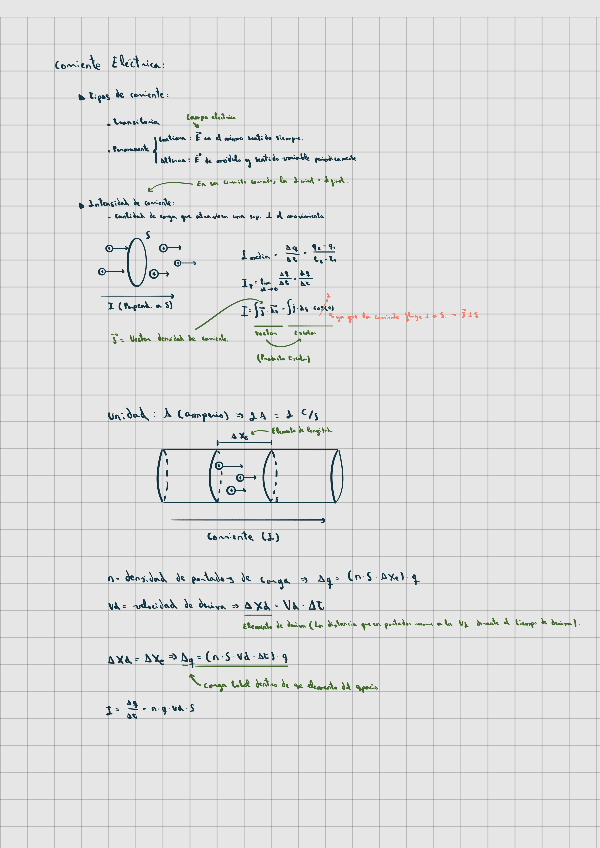 Corriente Eléctrica:
▶ Tipos de corriente:
Campo eléctrico
- Transitoria
- Permanente
Continua: E⃗ en el mismo sentido siempre.
Alterna: E⃗ de módulo y sentido variable periódicamente
En un circuito cerrado, la
▶ Intensidad de corriente:
- Cantidad de carga que atraviesa una sup. ⊥ al movimiento
S
I media = Δq/Δt = (q₂ - q₁)/(t₂ - t₁)
lim Δt→0 Δq/Δt = dq/dt
I (Perpend. a S)
I = ∫ j⃗ · ds⃗ = ∫ j · ds · cos(0)
1
ya que la corriente fluye ⊥ a S.
j⃗ = Vector densidad de corriente.
Vector Escalar
(Producto Escalar)
Unidad: A (amperio) ⇒ 1 A = 1 C/s
ΔXe ← Elemento de longitud
Corriente (I)
n = densidad de portadores de carga ⇒ Δq = (n · S · ΔXe) · q
Vd = velocidad de deriva ⇒ ΔXd = Vd · Δt
Elemento de deriva (La distancia que un portador a la Vd durante el tiempo de deriva).
ΔXd = ΔXe ⇒ Δq = (n · S · Vd · Δt) · q
Carga total dentro de ese elemento del espacio
I = Δq/Δt = n · q · Vd · S